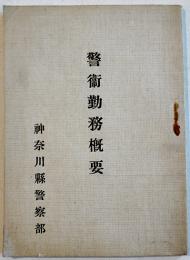 警衛勤務概要
神奈川縣警察部